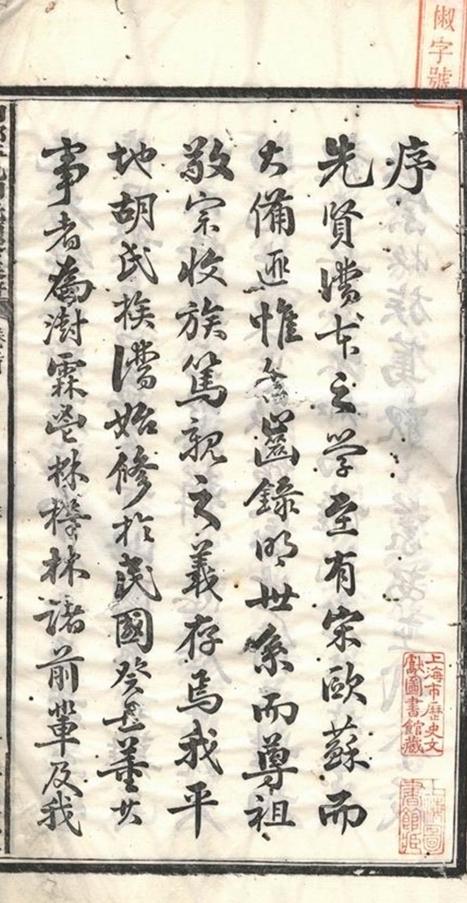 字號
序
先賢譜之學至有宋歐蘇而
大備匪惟齒錄明世系而尊祖
敬宗收族篤親之義存焉我平
地胡氏族譜始修於民國癸丑董其
事者為澍霖林林諸前輩及我
上海市歷史文
獻圖書館藏
上海圖
書館藏